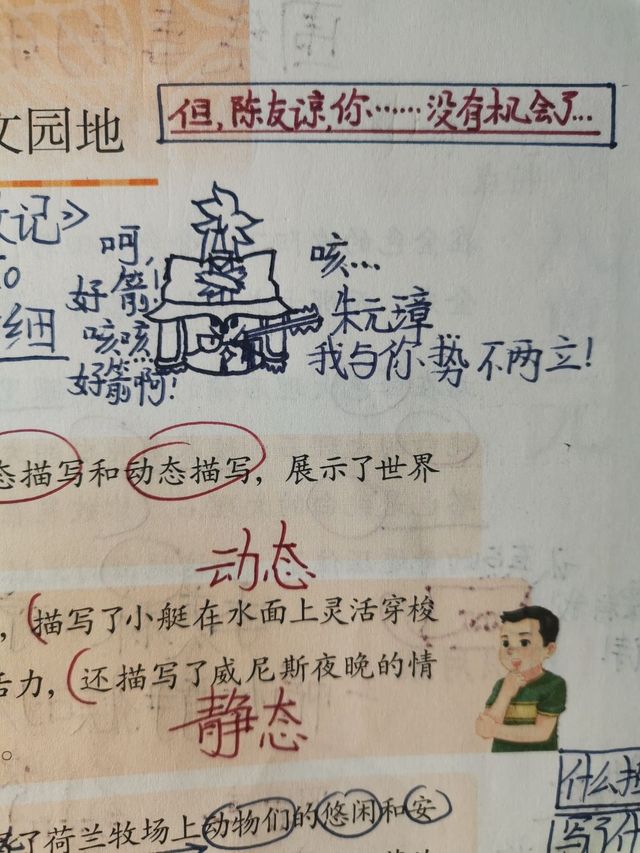 但,陈友谅,你……没有机会了...
文园地
记》
呵,
好箭!
咳咳
好箭啊!
咳...
朱元璋
我与你势不两立!
细
态描写和动态描写,展示了世界
动态
,描写了小艇在水面上灵活穿梭
活力,还描写了威尼斯夜晚的情
静态
。
了荷兰牧场上动物们的悠闲和安
什么
写了什